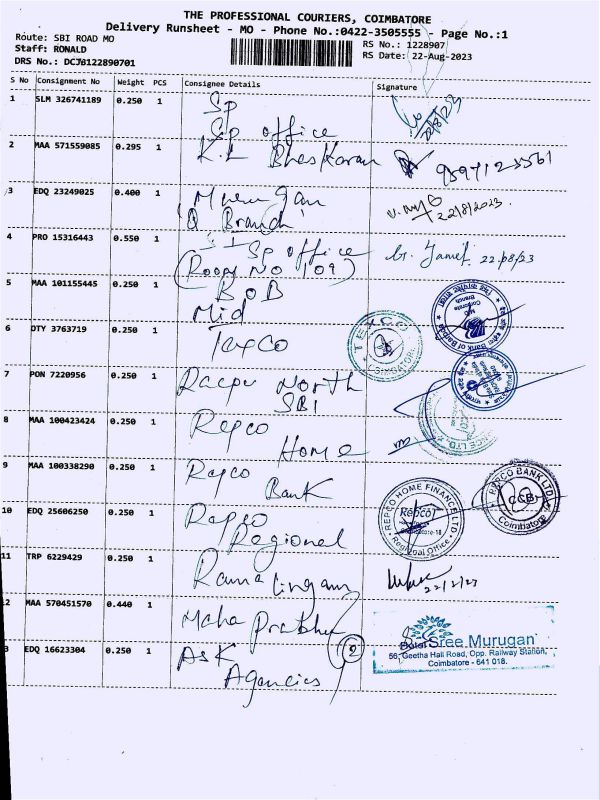 THE PROFESSIONAL COURIERS, COIMBATORE
Delivery Runsheet - MO - Phone No.:0422-3505555 - Page No.:1
Route: SBI ROAD MO
Staff: RONALD
DRS No.: DCJ0122890701
RS No.: 1228907
RS Date: 22-Aug-2023
S No Consignment No Weight PCS Consignee Details Signature
1 SLM 326741189 0.250 1 Sp
Sp office
22/8/23
2 MAA 571559085 0.295 1 K.L Bhaskaran
3 EDQ 23249025 0.400 1 Murugan
'Q' Branch
22/8/2023
4 PRO 15316443 0.550 1 Sp office
(Room No 109)
22/08/23
5 MAA 101155445 0.250 1 BOB
Mid
Bank of Baroda
Mid Corporate Branch
6 DTY 3763719 0.250 1 Texco
TEXCO
COIMBATORE
7 PON 7220956 0.250 1 Racpc North
SBI
8 MAA 100423424 0.250 1 Repco
Home
9 MAA 100338290 0.250 1 Repco
Bank
REPCO BANK LTD
CCB
Coimbatore
10 EDQ 25606250 0.250 1 Repco
Regional
REPCO HOME FINANCE LTD.
Repco
Regional Office
11 TRP 6229429 0.250 1 Ramalingam
12 MAA 570451570 0.440 1 Maha Prabhu
3 EDQ 16623304 0.250 1 ASK
Agencies
2
Hotel Sree Murugan
56, Geetha Hall Road, Opp. Railway Station,
Coimbatore - 641 018.